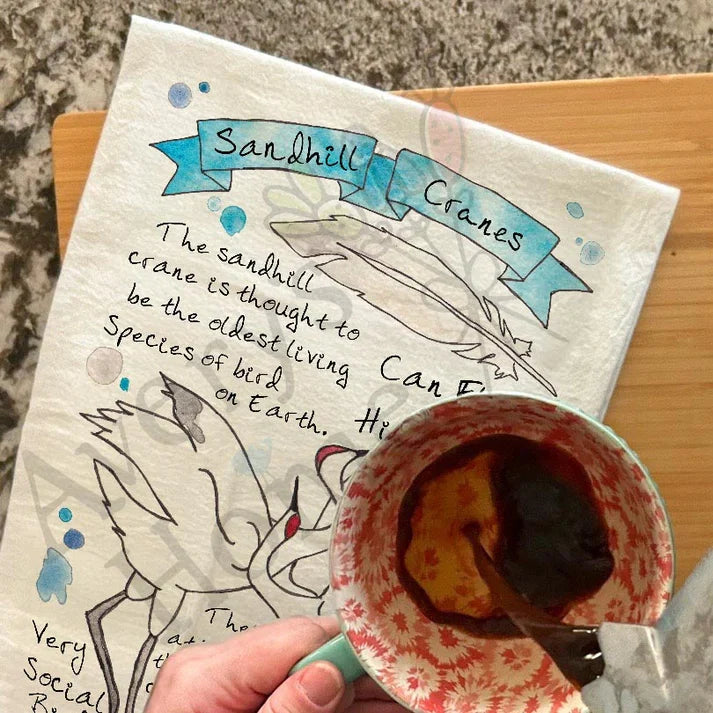 Sandhill
Cranes
The sandhill
crane is thought to
be the oldest living
Species of bird
on Earth.
Can
Very
Social
Avery's